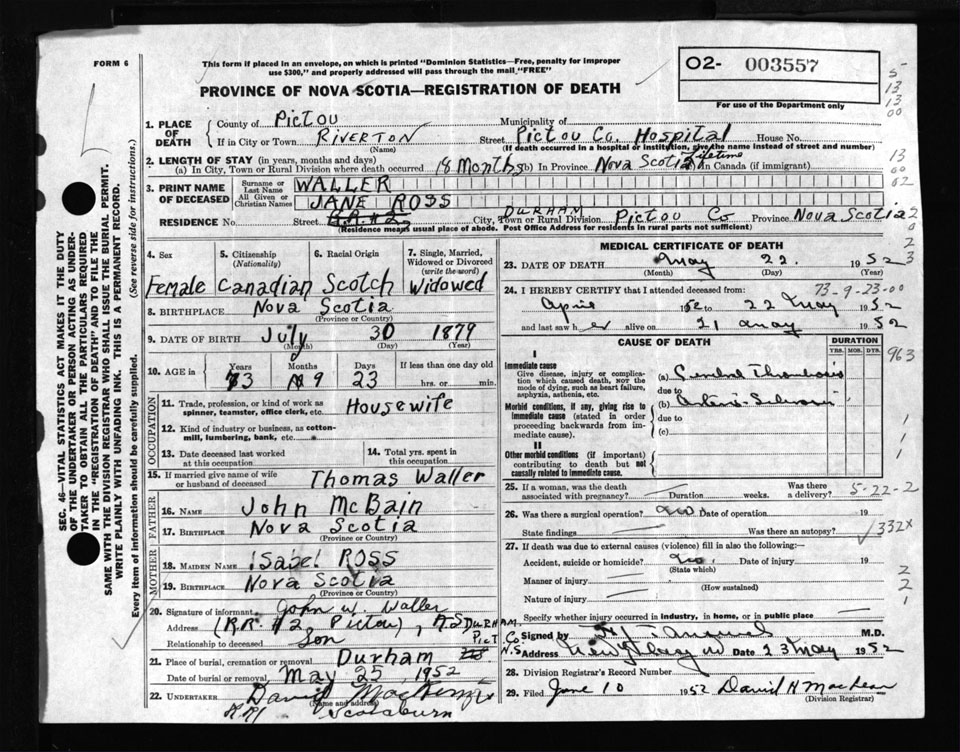 FORM 6
This form if placed in an envelope, on which is printed "Dominion Statistics—Free, penalty for improper
use $300," and properly addressed will pass through the mail "FREE"
PROVINCE OF NOVA SCOTIA—REGISTRATION OF DEATH
02- 003557
For use of the Department only
5-
13
13
00
13
00
02
0
2
3
SEC. 46—VITAL STATISTICS ACT MAKES IT THE DUTY
OF THE UNDERTAKER OR PERSON ACTING AS UNDER-
TAKER TO OBTAIN ALL THE PARTICULARS REQUIRED
IN THE "REGISTRATION OF DEATH" AND TO FILE THE
SAME WITH THE DIVISION REGISTRAR WHO SHALL ISSUE THE BURIAL PERMIT.
WRITE PLAINLY WITH UNFADING INK. THIS IS A PERMANENT RECORD.
Every item of information should be carefully supplied. (See reverse side for instructions.)
1. PLACE OF DEATH
County of Pictou Municipality of
If in City or Town RIVERTON Street Pictou Co. Hospital House No.
(Name) (If death occurred in a hospital or institution, give the name instead of street and number)
2. LENGTH OF STAY (in years, months and days)
(a) In City, Town or Rural Division where death occurred 18 Months (b) In Province Nova Scotia Lifetime In Canada (if immigrant)
3. PRINT NAME OF DECEASED
Surname or Last Name WALLER
All Given or Christian Names JANE ROSS
RESIDENCE No. Street R.R.#2 City, Town or Rural Division DURHAM Pictou Co Province Nova Scotia
(Residence means usual place of abode. Post Office Address for residents in rural parts not sufficient)
4. Sex Female
5. Citizenship (Nationality) Canadian
6. Racial Origin Scotch
7. Single, Married, Widowed or Divorced (write the word) Widowed
8. BIRTHPLACE Nova Scotia
(Province or Country)
9. DATE OF BIRTH July 30 1879
(Month) (Day) (Year)
10. AGE in Years 73 Months 9 Days 23 If less than one day old hrs. or min.
OCCUPATION
11. Trade, profession, or kind of work as spinner, teamster, office clerk, etc. Housewife
12. Kind of industry or business, as cotton-mill, lumbering, bank, etc.
13. Date deceased last worked at this occupation
14. Total yrs. spent in this occupation
15. If married give name of wife or husband of deceased Thomas Waller
FATHER
16. NAME John McBain
17. BIRTHPLACE Nova Scotia
(Province or Country)
MOTHER
18. MAIDEN NAME Isabel ROSS
19. BIRTHPLACE Nova Scotia
(Province or Country)
20. Signature of informant John W. Waller
Address (R.R. #2 Pictou), N.S DURHAM PICT Co N.S.
Relationship to deceased Son
21. Place of burial, cremation or removal Durham
Date of burial or removal May 25, 1952
22. UNDERTAKER David MacKenzie
(Name and address)
R R 1 Scotsburn
MEDICAL CERTIFICATE OF DEATH
23. DATE OF DEATH May 22. 1952
(Month) (Day) (Year)
73-9-23-00
24. I HEREBY CERTIFY that I attended deceased from:
April 1952 to 22 May 1952
and last saw her alive on 21 May 1952
CAUSE OF DEATH
DURATION
YRS. MOS. DYS.
963
I
Immediate cause
Give disease, injury or complication which caused death, NOT the mode of dying, such as heart failure, asphyxia, asthenia, etc.
(a) Cerebral Thrombosis
due to
Morbid conditions, if any, giving rise to immediate cause (stated in order proceeding backwards from immediate cause).
(b)
due to
(c)
1
1
1
II
Other morbid conditions (if important) contributing to death but not causally related to immediate cause.
25. If a woman, was the death associated with pregnancy? Duration weeks. Was there a delivery?
5-22-2
26. Was there a surgical operation? No Date of operation 19
State findings Was there an autopsy?
332X
27. If death was due to external causes (violence) fill in also the following:—
Accident, suicide or homicide? No. Date of injury 19
(State which)
Manner of injury
(How sustained)
Nature of injury
2
2
1
Specify whether injury occurred in industry, in home, or in public place
Signed by M.D.
Address New Glasgow Date 23 May 1952
28. Division Registrar's Record Number
29. Filed June 10 1952 David H MacLean
(Division Registrar)